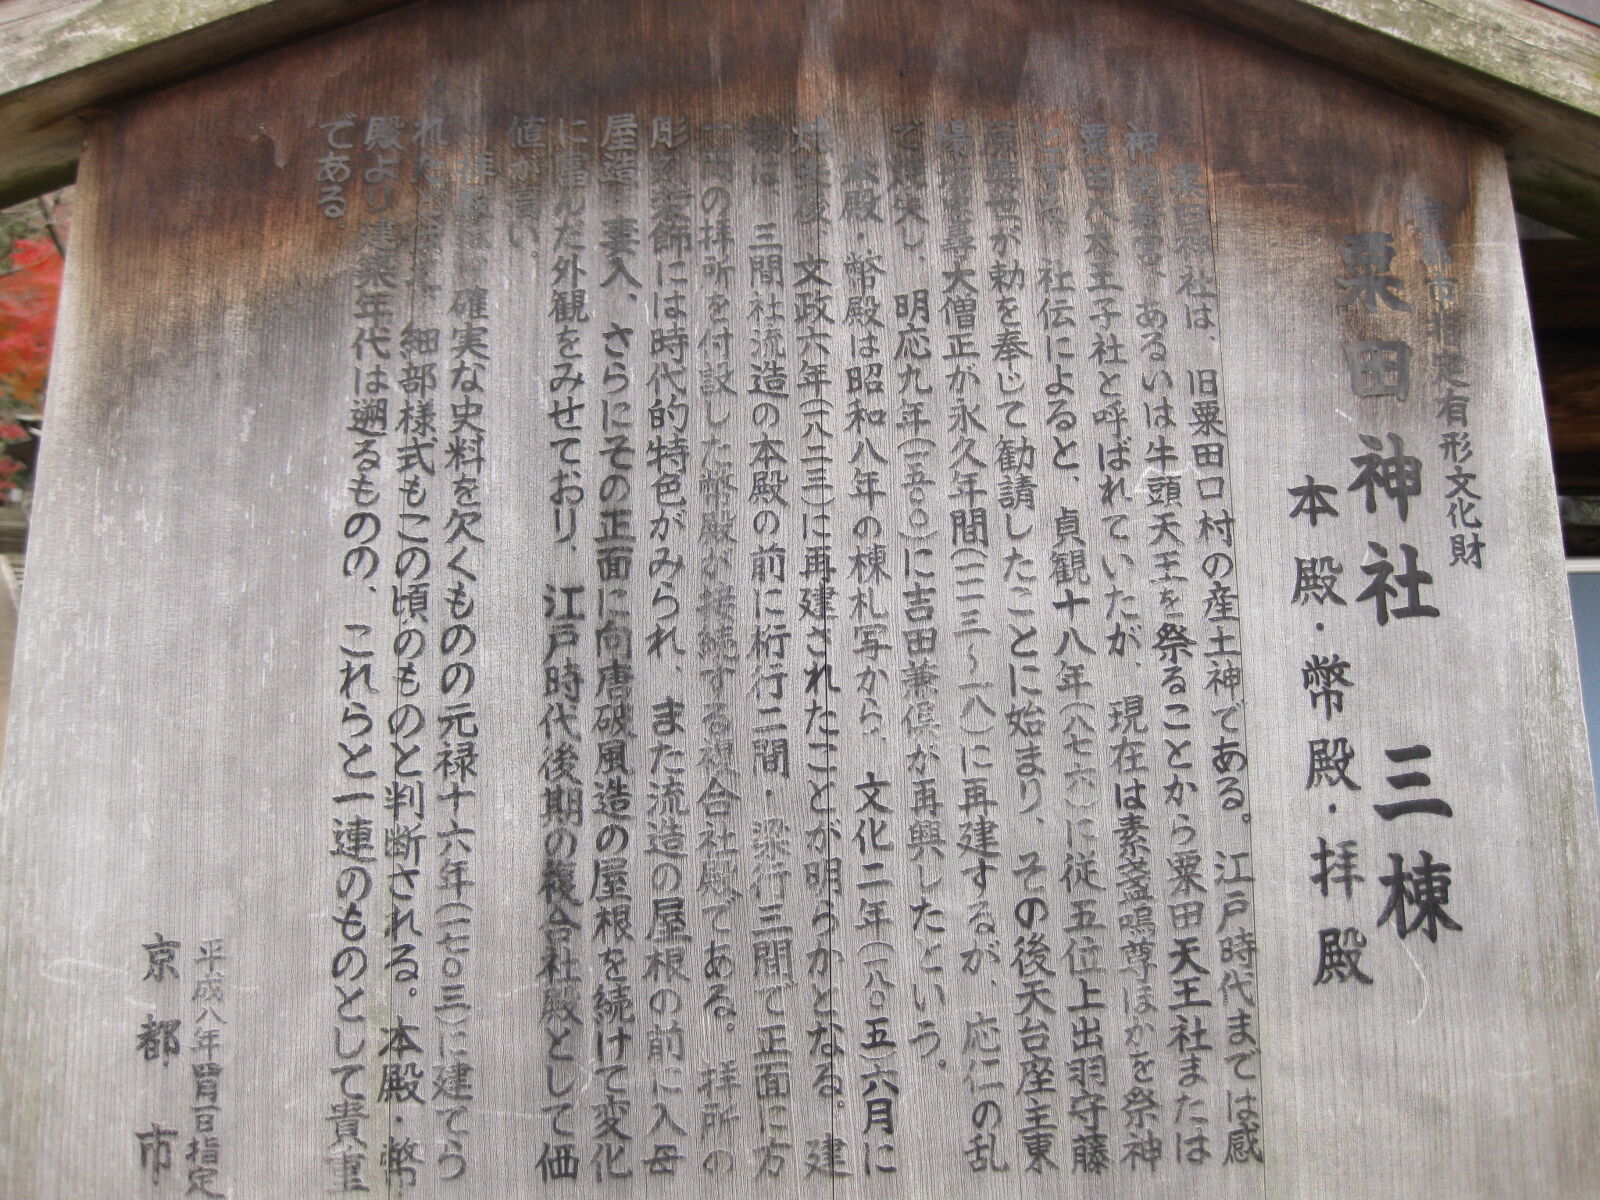 京都市指定有形文化財
粟田神社 三棟
本殿・幣殿・拝殿
粟田神社は、旧粟田口村の産土神である。江戸時代までは感
神院新宮、あるいは牛頭天王を祭ることから粟田天王社または
粟田八大王子社と呼ばれていたが、現在は素盞嗚尊ほかを祭神
とする。社伝によると、貞観十八年(八七六)に従五位上出羽守藤
原興世が勅を奉じて勧請したことに始まり、その後天台座主東
陽坊忠尋大僧正が永久年間(一一一三〜一八)に再建するが、応仁の乱
で焼失し、明応九年(一五〇〇)に吉田兼倶が再興したという。
本殿・幣殿は昭和八年の棟札写から、文化二年(一八〇五)六月に
焼失後、文政六年(一八二三)に再建されたことが明らかとなる。建
物は、三間社流造の本殿の前に桁行二間・梁行三間で正面に方
一間の拝所を付設した幣殿が接続する複合社殿である。拝所の
彫刻装飾には時代的特色がみられ、また流造の屋根の前に入母
屋造、妻入、さらにその正面に向唐破風造の屋根を続けて変化
に富んだ外観をみせており、江戸時代後期の複合社殿として価
値が高い。
拝殿は、確実な史料を欠くものの元禄十六年(一七〇三)に建てら
れたと伝え、細部様式もこの頃のものと判断される。本殿・幣
殿より建築年代は遡るものの、これらと一連のものとして貴重
である。
平成八年四月一日指定
京都市